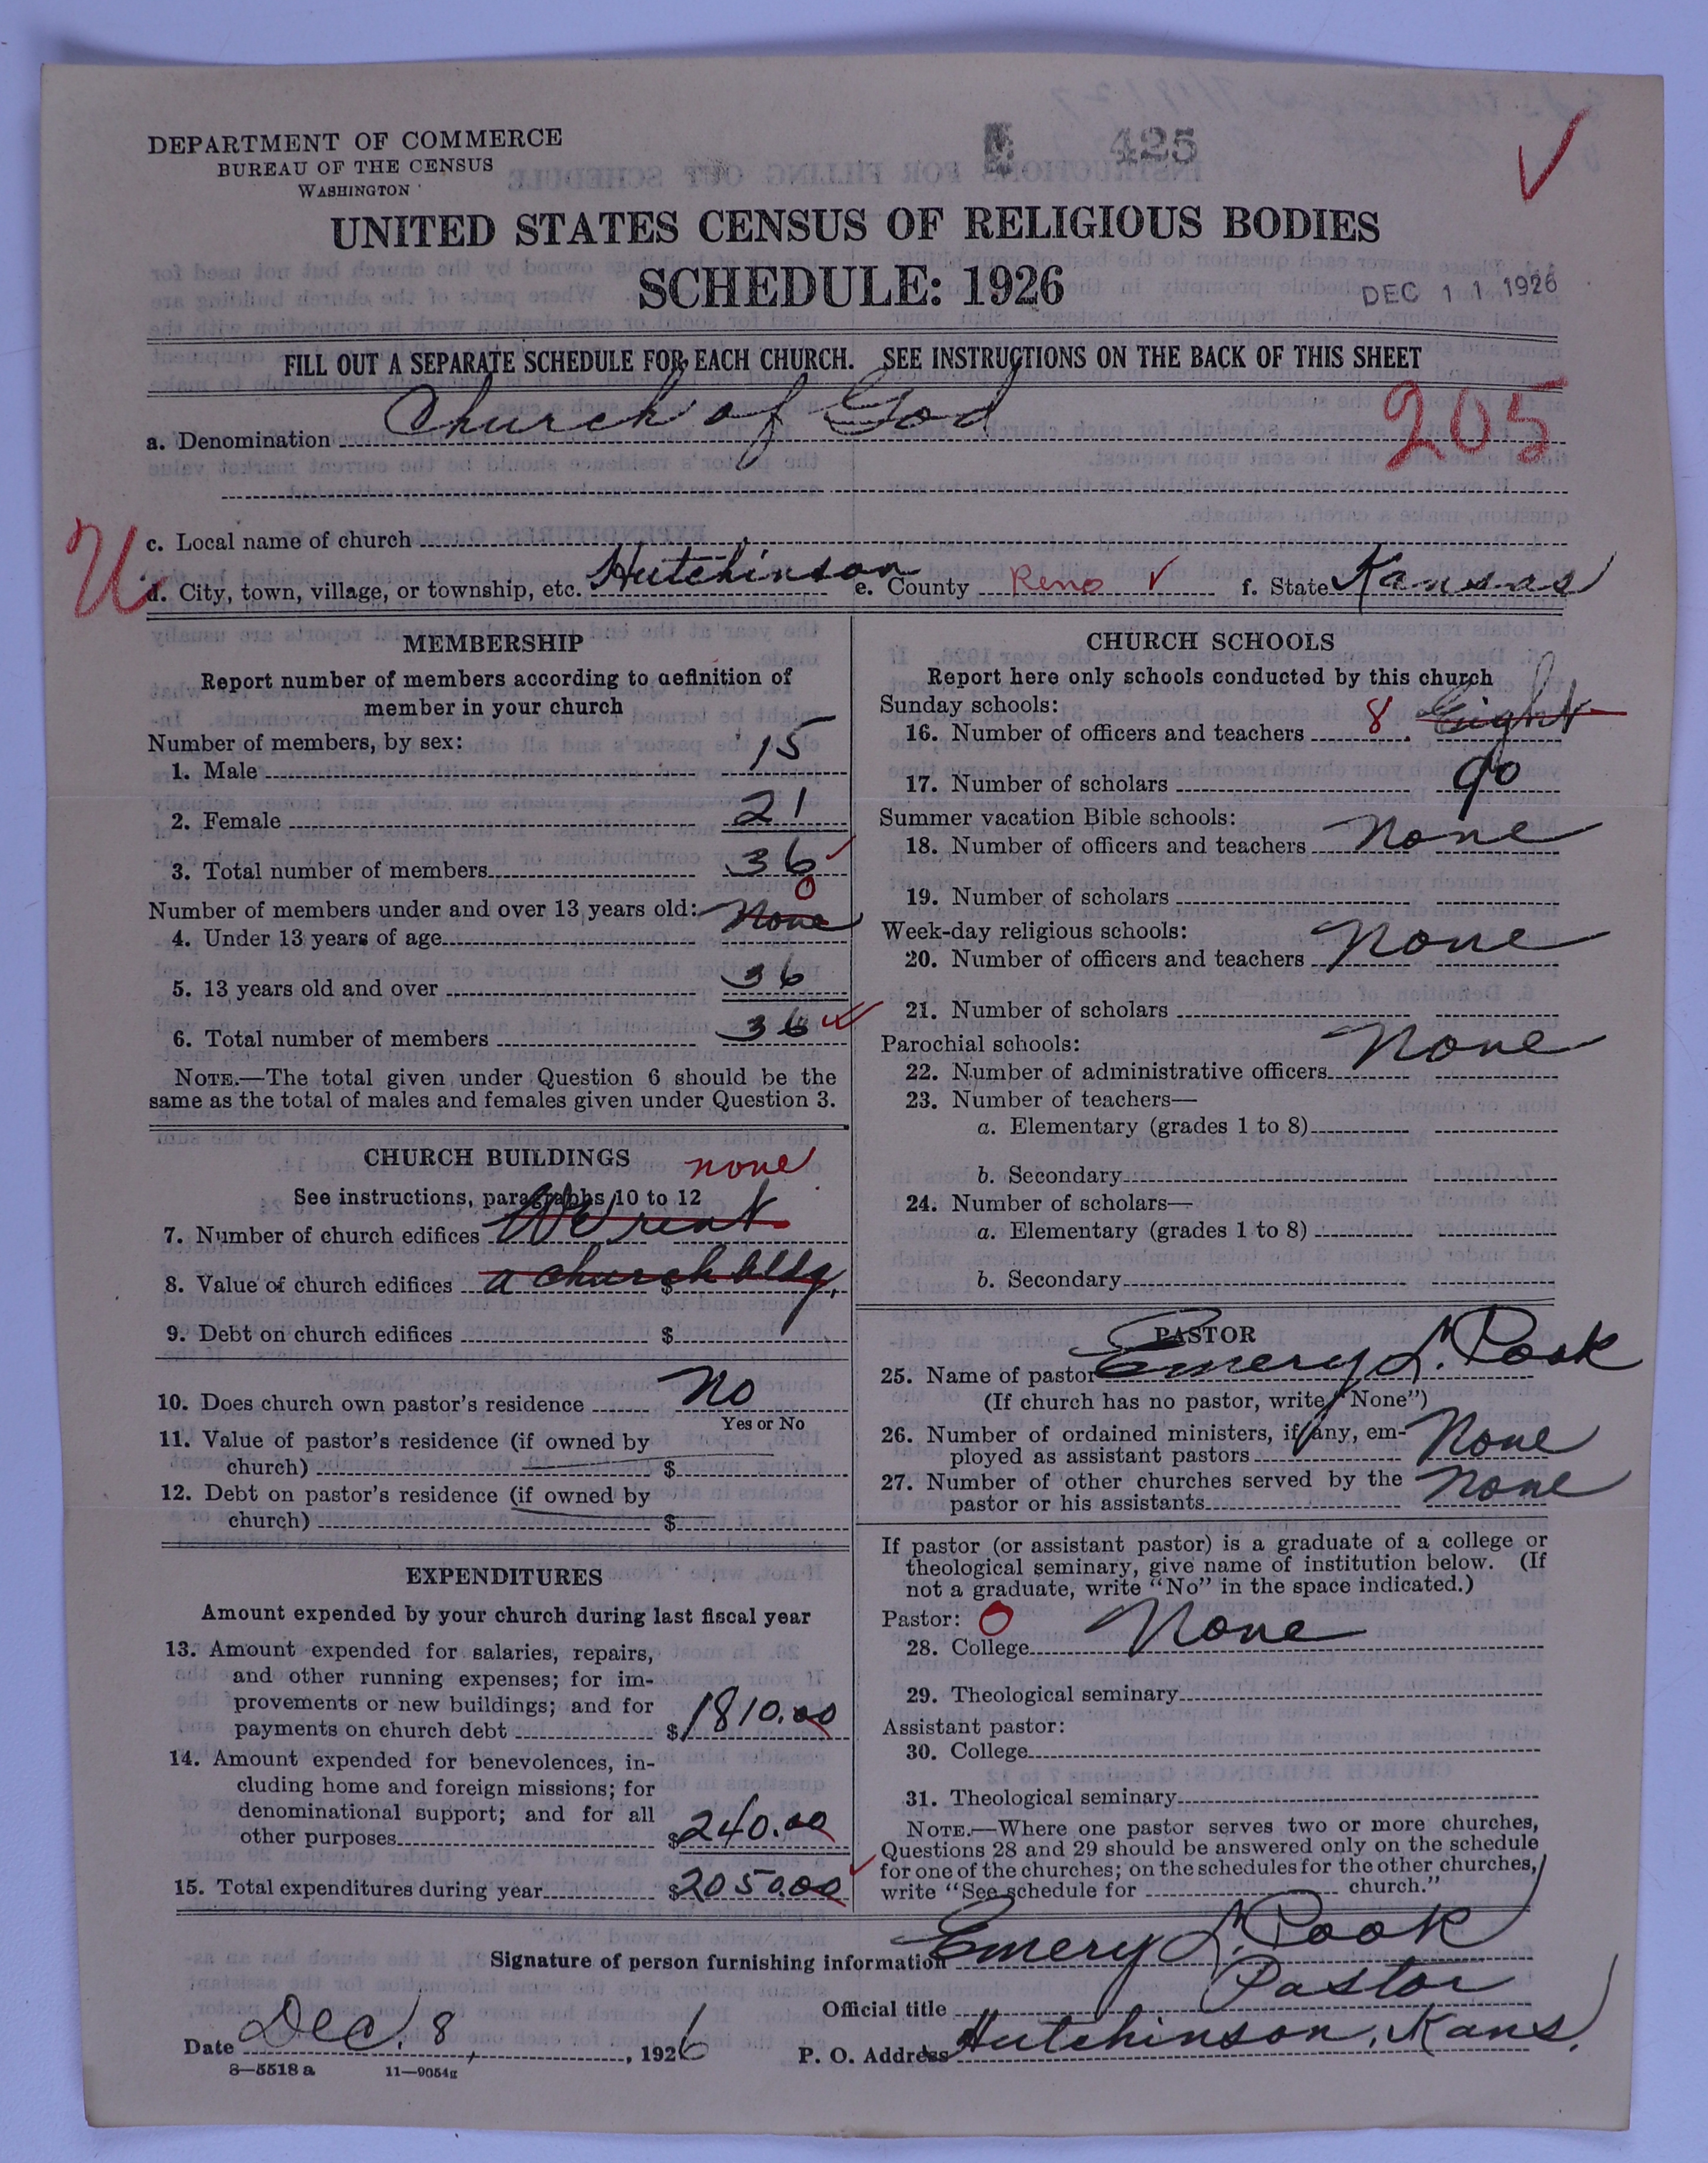 DEPARTMENT OF COMMERCE
BUREAU OF THE CENSUS
WASHINGTON
425
UNITED STATES CENSUS OF RELIGIOUS BODIES
SCHEDULE: 1926
DEC 11 1926
FILL OUT A SEPARATE SCHEDULE FOR EACH CHURCH. SEE INSTRUCTIONS ON THE BACK OF THIS SHEET
a. Denomination Church of God
205
c. Local name of church
U
d. City, town, village, or township, etc. Hutchinson e. County Reno f. State Kansas
MEMBERSHIP
Report number of members according to definition of
member in your church
Number of members, by sex:
1. Male 15
2. Female 21
3. Total number of members 36
0
Number of members under and over 13 years old:
4. Under 13 years of age None
5. 13 years old and over 36
6. Total number of members 36
NOTE.—The total given under Question 6 should be the
same as the total of males and females given under Question 3.
CHURCH BUILDINGS none
See instructions, paragraphs 10 to 12
7. Number of church edifices We rent
8. Value of church edifices $ a church bldg.
9. Debt on church edifices $
10. Does church own pastor's residence No
Yes or No
11. Value of pastor's residence (if owned by
church) $
12. Debt on pastor's residence (if owned by
church) $
EXPENDITURES
Amount expended by your church during last fiscal year
13. Amount expended for salaries, repairs,
and other running expenses; for im-
provements or new buildings; and for
payments on church debt $1810.00
14. Amount expended for benevolences, in-
cluding home and foreign missions; for
denominational support; and for all
other purposes $240.00
15. Total expenditures during year $2050.00
CHURCH SCHOOLS
Report here only schools conducted by this church
Sunday schools:
16. Number of officers and teachers 8 Eight
17. Number of scholars 90
Summer vacation Bible schools:
18. Number of officers and teachers None
19. Number of scholars
Week-day religious schools:
20. Number of officers and teachers None
21. Number of scholars
Parochial schools:
22. Number of administrative officers None
23. Number of teachers—
a. Elementary (grades 1 to 8)
b. Secondary
24. Number of scholars—
a. Elementary (grades 1 to 8)
b. Secondary
PASTOR
25. Name of pastor Emery L. Pook
(If church has no pastor, write "None")
26. Number of ordained ministers, if any, em-
ployed as assistant pastors None
27. Number of other churches served by the
pastor or his assistants None
If pastor (or assistant pastor) is a graduate of a college or
theological seminary, give name of institution below. (If
not a graduate, write "No" in the space indicated.)
Pastor: 0
28. College None
29. Theological seminary
Assistant pastor:
30. College
31. Theological seminary
NOTE.—Where one pastor serves two or more churches,
Questions 28 and 29 should be answered only on the schedule
for one of the churches; on the schedules for the other churches,
write "See schedule for church."
Signature of person furnishing information Emery L. Pook
Official title Pastor
Date Dec. 8, 1926 P. O. Address Hutchinson, Kans.
8—5518 a 11—9054g